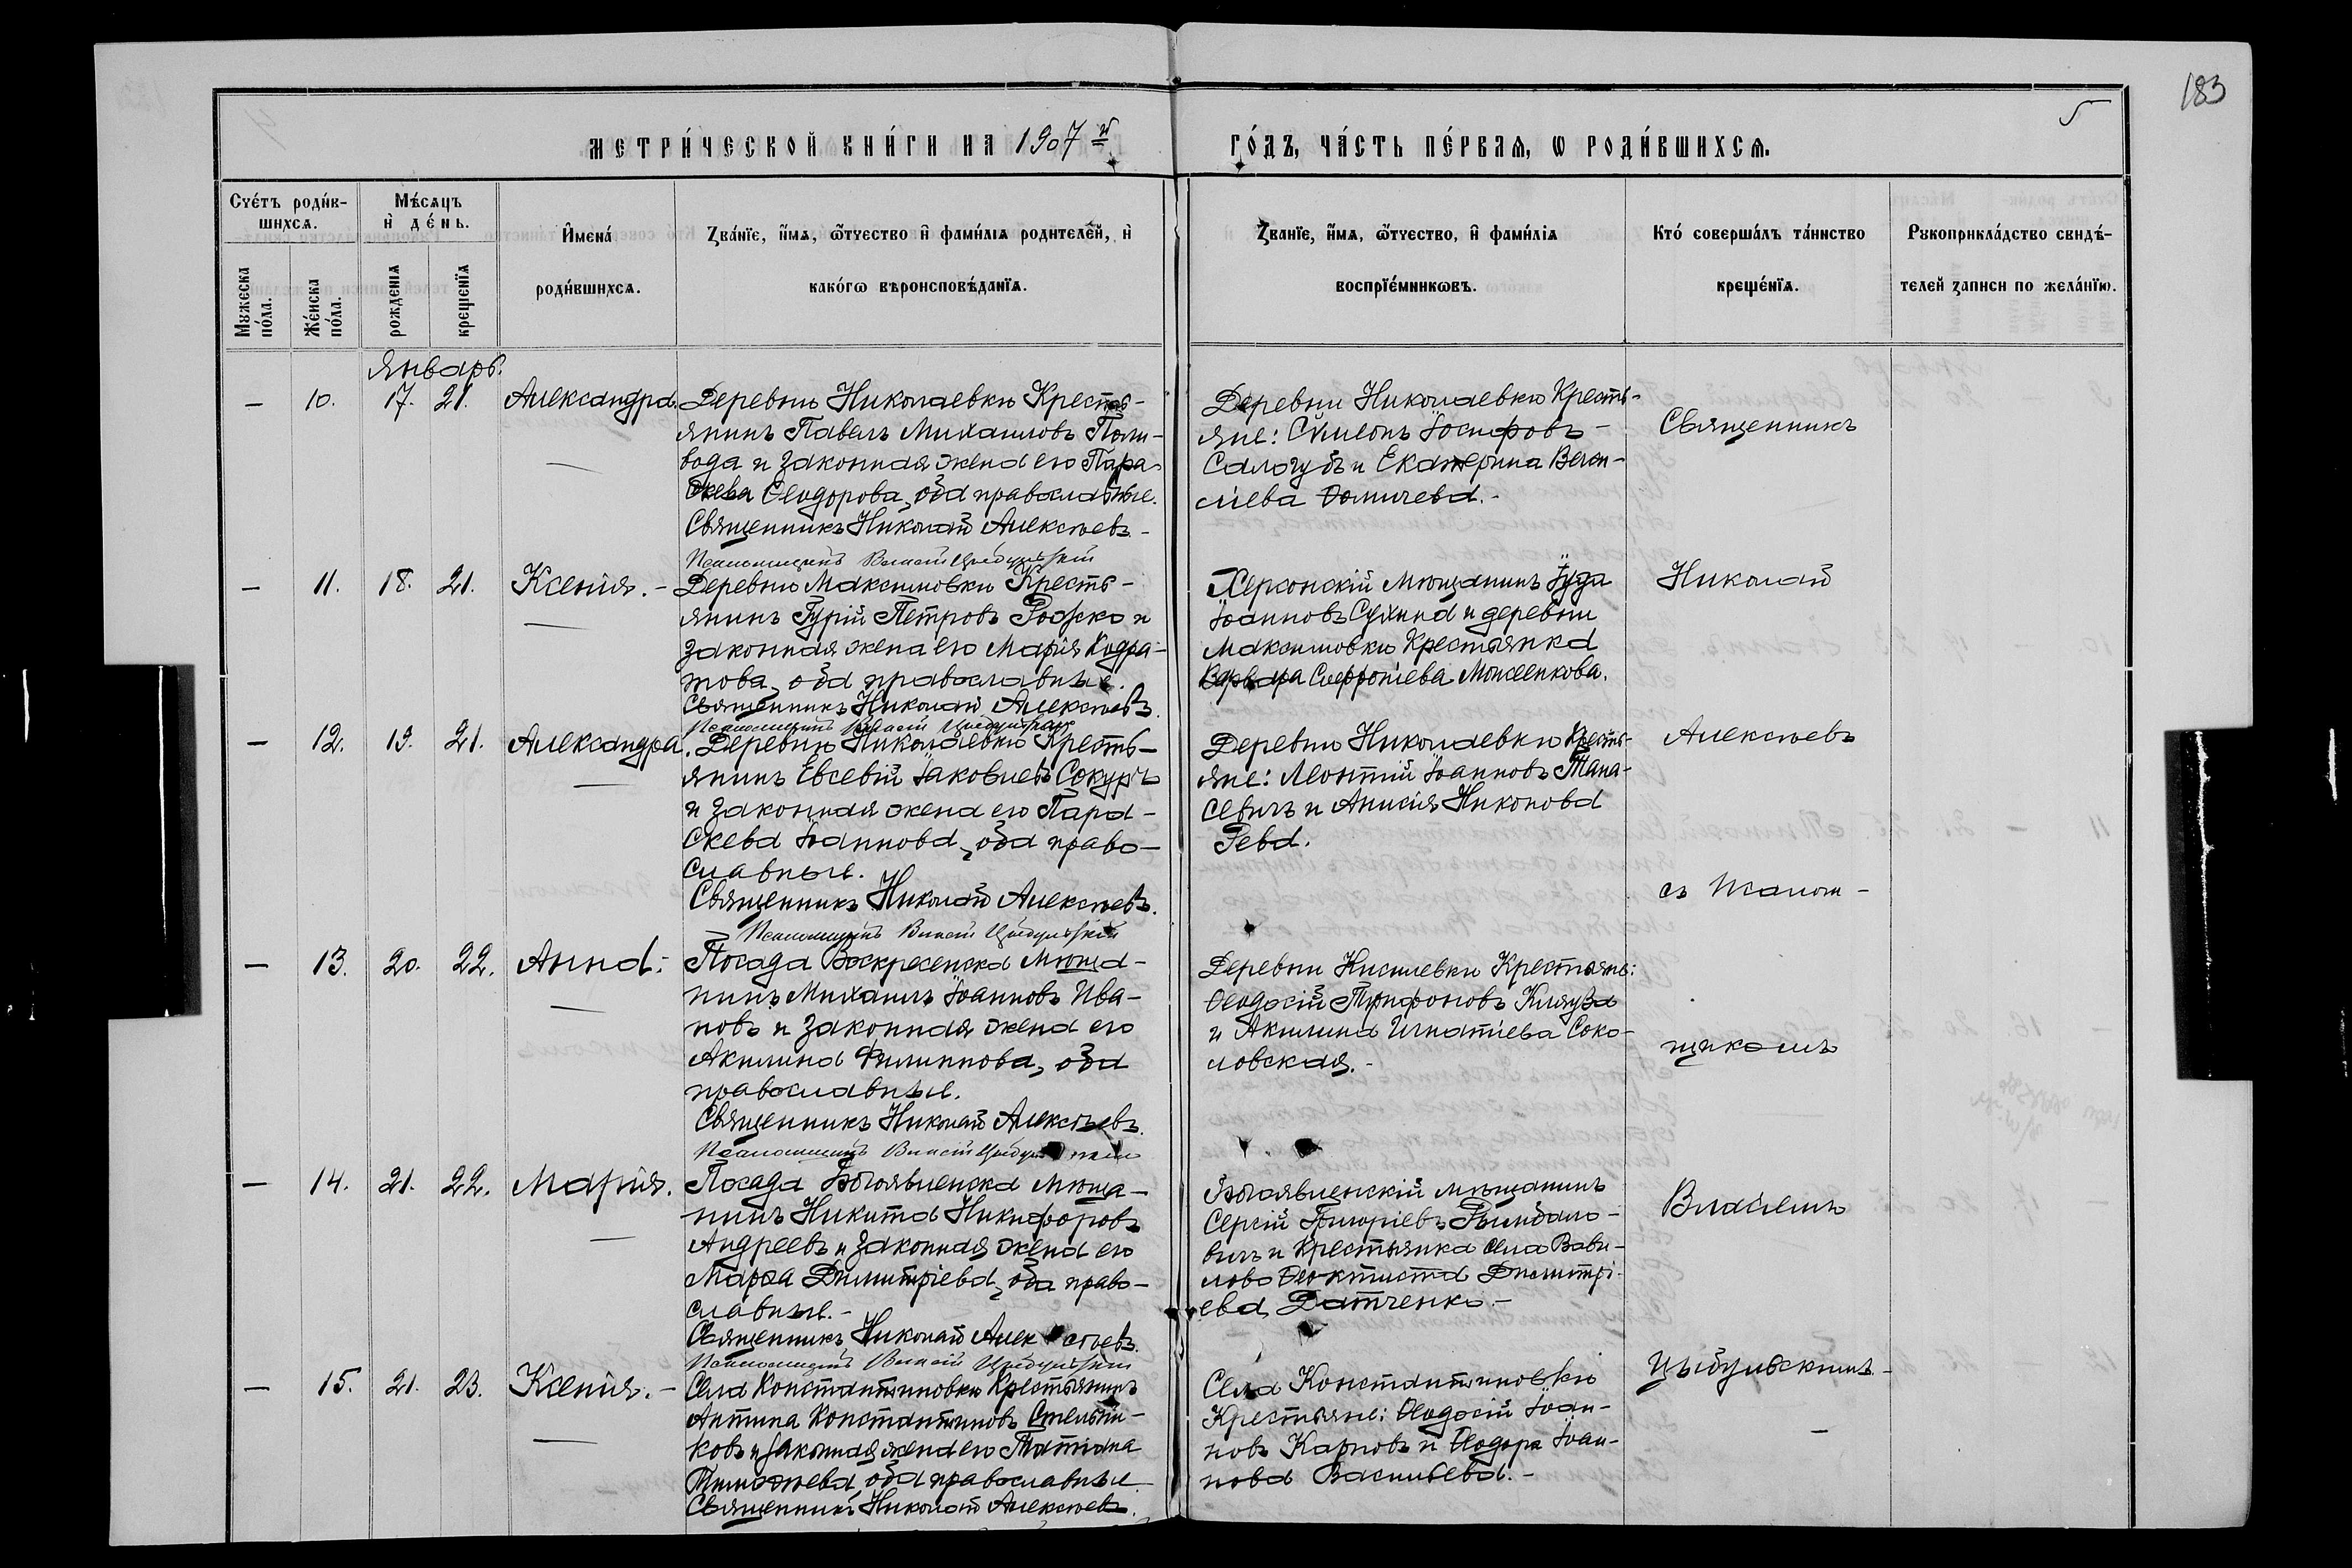 183
5
МЕТРИ́ЧЕСКОЙ КНИ́ГИ НА 1907 й
ГО́ДЪ, ЧА́СТЬ ПЕ́РВАѦ, Ѡ РОДИ́ВШИХСѦ.
Сче́тъ роди́в-
шихсѧ.
Мужеска по́ла.
Же́нска по́ла.
Мѣ́сѧцъ
и де́нь.
рожденїѧ
креще́нїѧ
Имена́
роди́вшихсѧ.
Зва́нїе, и́мѧ, ѻ́тчество и фами́лїѧ родителе́й, и
како́гѡ вѣроисповѣ́данїѧ.
Зва́нїе, и́мѧ, ѻ́тчество, и фами́лїѧ
воспрїе́мникѡвъ.
Кто́ соверша́лъ та́инство
креще́нїѧ.
Рꙋкоприкла́дство свидѣ́-
телей записи по жела́нїю.
Январь.
— 10. 17. 21. Александра.
Деревни Николаевки Кресть-
янинъ Павелъ Михаиловъ Поли-
вода и законная жена его Пара-
скева Ѳеодорова, оба православные.
Священникъ Николай Алексѣевъ.
Псаломщикъ Власій Цыбульскій
Деревни Николаевки Кресть-
яне: Сѵмеонъ Іосифовъ
Салогубъ и Екатерина
Священникъ
— 11. 18. 21. Ксенія.
Деревни Максимовки Кресть-
янинъ Гурій Петровъ Рожко и
законная жена его Марія Кодра-
това, оба православные.
Священникъ Николай Алексѣевъ.
Псаломщикъ Власій Цыбульскій
Херсонскій мѣщанинъ Іуда
Іоанновъ Сухина и деревни
Максимовки Крестьянка
Варвара Софроніева
Николай
— 12. 19. 21. Александра.
Деревни Николаевки Кресть-
янинъ Евсевій Іаковлевъ
и законная жена его Пара-
скева Іоаннова, оба право-
славные.
Священникъ Николай Алексѣевъ.
Псаломщикъ Власій Цыбульскій
Деревни Николаевки Кресть-
яне: Леонтій Іоанновъ Тана-
севичъ и Анисія Никонова
Рева.
Алексѣевъ
съ Псалом-
— 13. 20. 22. Анна.
Посада Воскресенска Мѣща-
нинъ Михаилъ Іоанновъ Ива-
новъ и законная жена его
Акилина Филиппова, оба
православные.
Священникъ Николай Алексѣевъ.
Псаломщикъ Власій
Деревни Киселевки Крестьяне:
Ѳеодосій Трифоновъ Кляуза
и Акилина Игнатіева Соко-
ловская.
щикомъ
— 14. 21. 22. Марія.
Посада Богоявленска мѣща-
нинъ Никита Никифоровъ
Андреевъ и законная жена его
Марѳа Димитріева, оба право-
славные.
Священникъ Николай Алексѣевъ.
Псаломщикъ Власій Цыбульскій
Богоявленскій мѣщанинъ
Сергій Григоріевъ
вичъ и крестьянка села Вави-
лово Ѳеоктиста Димитрі-
ева Датченко.
Власіемъ
— 15. 21. 23. Ксенія.
Села Константиновки Крестьянинъ
Антипа Константиновъ Стельни-
ковъ и законная жена его Татіана
Тимоѳеева, оба православные.
Священникъ Николай Алексѣевъ.
Села Константиновки
Крестьяне: Ѳеодосій Іоан-
новъ Карповъ и Ѳеодора Іоан-
нова Васильева.
Цыбульскимъ.